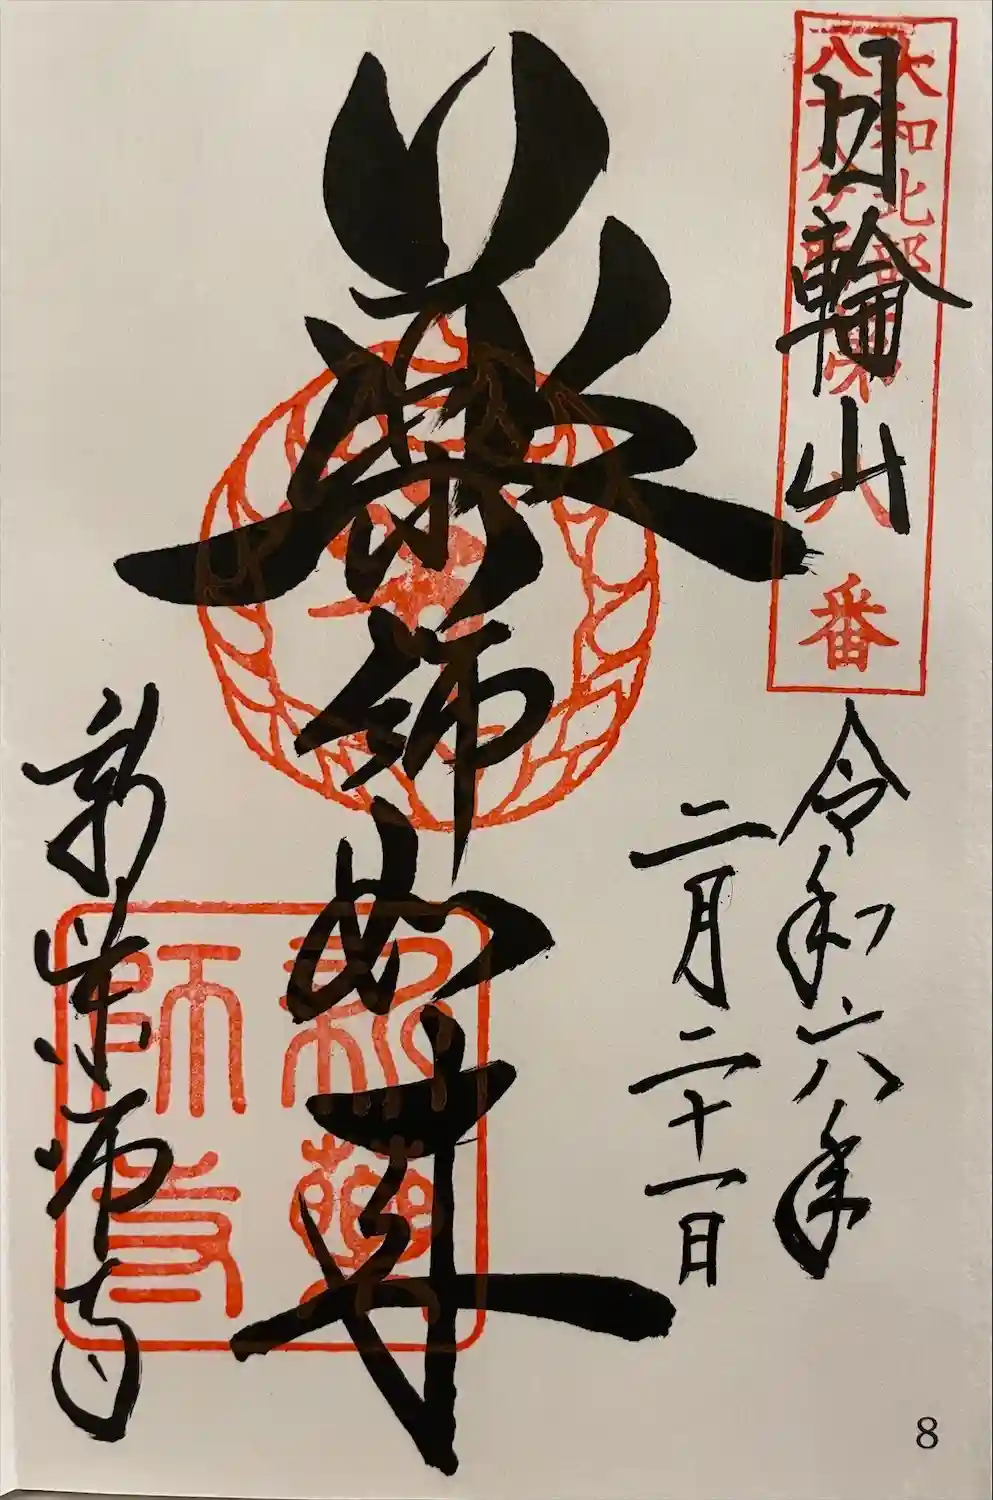 大和北部
八十八ヶ所
第八番
日輪山
令和六年
二月二十一日
薬師如来
新薬師寺
新薬
師寺
8